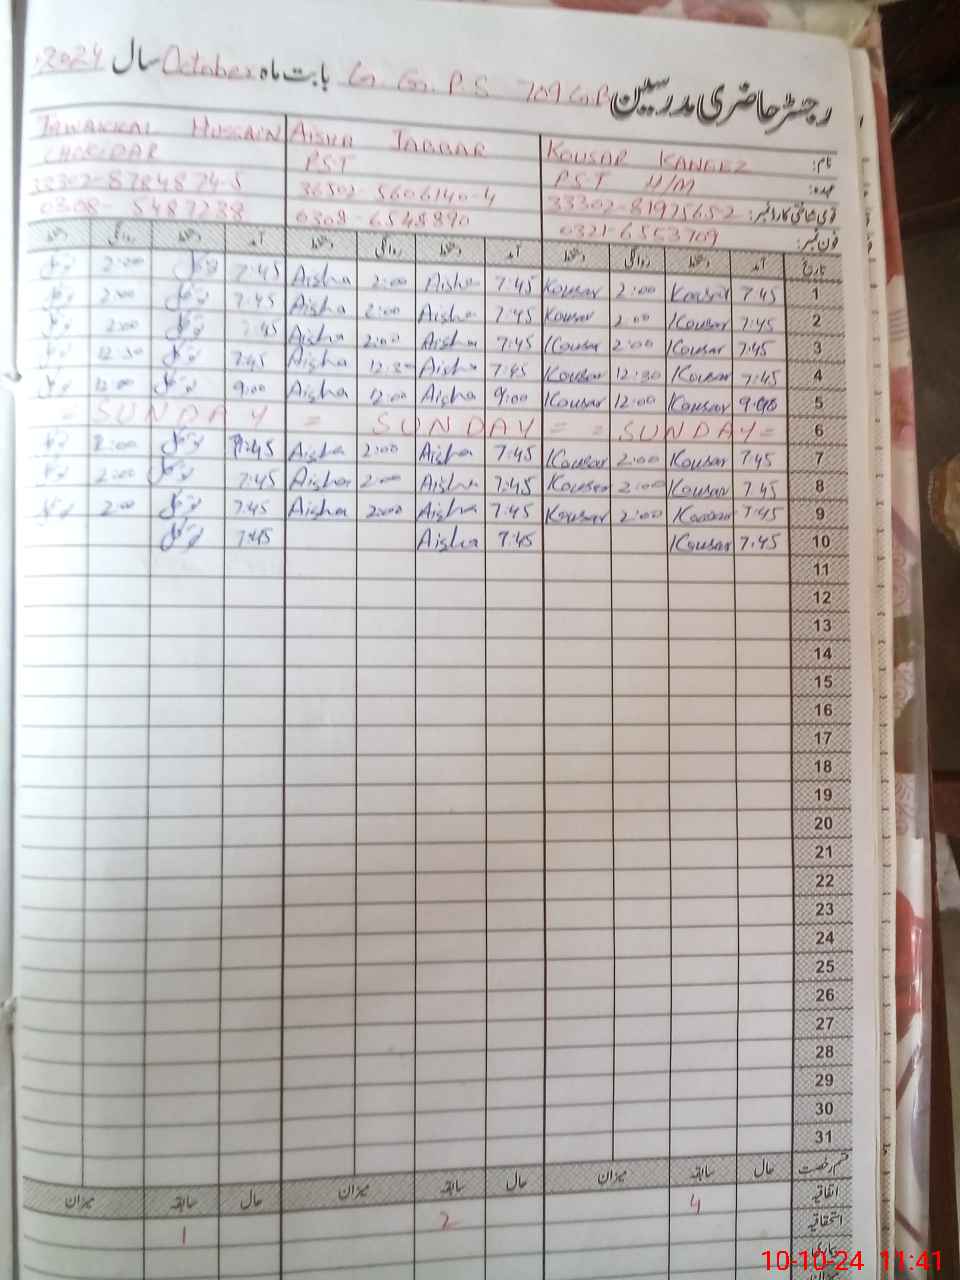 رجسٹر حاضری مدرسین G. G. P. S 709 G.B بابت ماہ October سال 2024
نام: KOUSAR KANEEZ AISHA JABBAR TAWAKKAL HUSSAIN
عہدہ: PST H/M PST CHOKIDAR
قومی شناختی کارڈ نمبر: 33302-8197565-2 36502-5606140-4 33302-8784874-5
فون نمبر: 0321-6553709 0308-6548890 0308-5487238
تاریخ آمد دستخط روانگی دستخط آمد دستخط روانگی دستخط آمد دستخط روانگی دستخط
1 7:45 Kousar 2:00 Kousar 7:45 Aisha 2:00 Aisha 7:45 توکل 2:00
2 7:45 Kousar 2:00 Kousar 7:45 Aisha 2:00 Aisha 7:45 توکل 2:00
3 7:45 Kousar 2:00 Kousar 7:45 Aisha 2:00 Aisha 7:45 توکل 2:00
4 7:45 Kousar 12:30 Kousar 7:45 Aisha 12:30 Aisha 7:45 توکل 12:30
5 9:00 Kousar 12:00 Kousar 9:00 Aisha 12:00 Aisha 9:00 توکل 12:00
6 = SUNDAY = = SUNDAY = SUNDAY =
7 7:45 Kousar 2:00 Kousar 7:45 Aisha 2:00 Aisha 7:45 توکل 2:00
8 7:45 Kousar 2:00 Kousar 7:45 Aisha 2:00 Aisha 7:45 توکل 2:00
9 7:45 Kousar 2:00 Kousar 7:45 Aisha 2:00 Aisha 7:45 توکل 2:00
10 7:45 Kousar 7:45 Aisha 7:45 توکل
11
12
13
14
15
16
17
18
19
20
21
22
23
24
25
26
27
28
29
30
31
قسم رخصت حال سابقہ میزان حال سابقہ میزان حال سابقہ میزان
اتفاقیہ 4 2 1
استحقاقیہ
بیماری
میزان
10-10-24 11:41